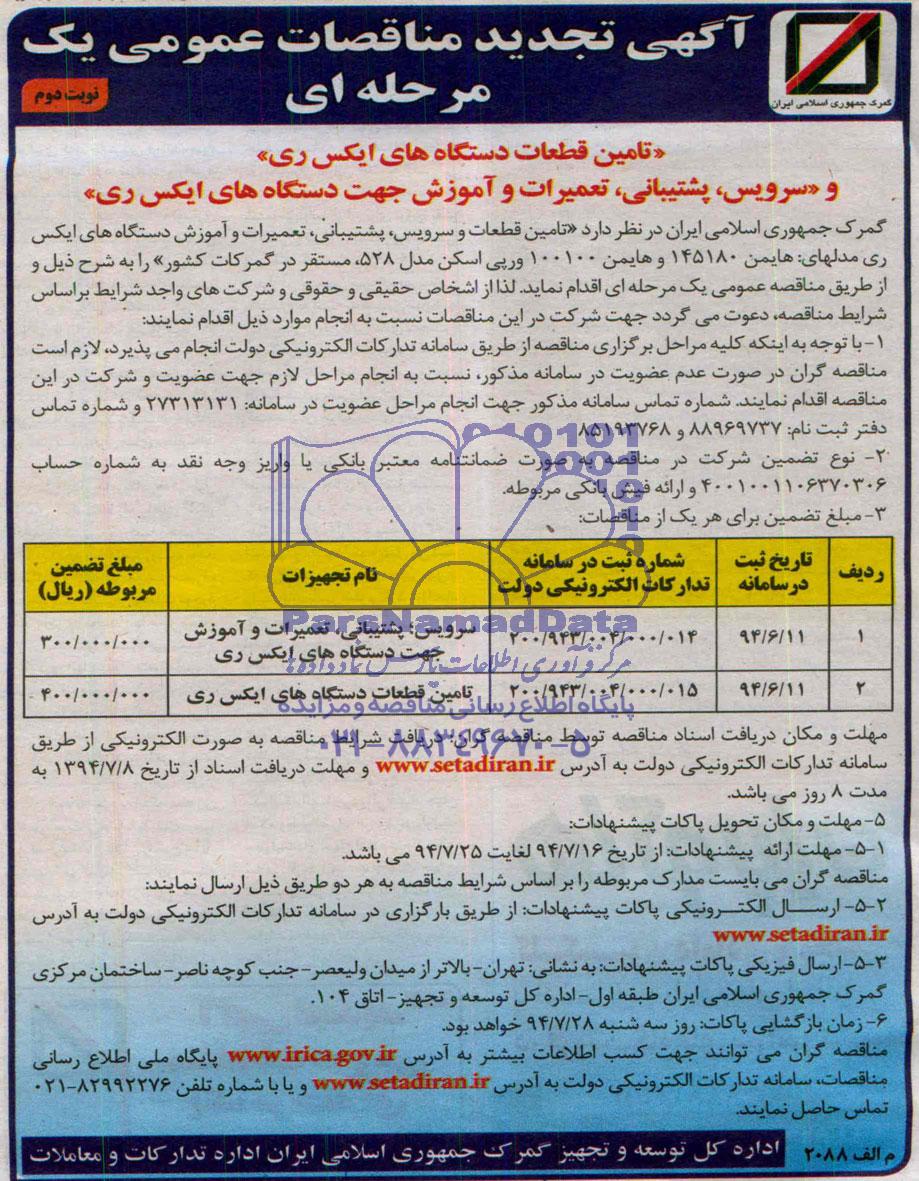 آگهی تجدید مناقصات عمومی یک
مرحله ای
نوبت دوم
گمرک جمهوری اسلامی ایران
«تامین قطعات دستگاه های ایکس ری»
و «سرویس، پشتیبانی، تعمیرات و آموزش جهت دستگاه های ایکس ری»
گمرک جمهوری اسلامی ایران در نظر دارد «تامین قطعات و سرویس، پشتیبانی، تعمیرات و آموزش دستگاه های ایکس
ری مدلهای: هایمن ۱۴۵۱۸۰ و هایمن ۱۰۰۱۰۰ ورپی اسکن مدل ۵۲۸، مستقر در گمرکات کشور» را به شرح ذیل و
از طریق مناقصه عمومی یک مرحله ای اقدام نماید. لذا از اشخاص حقیقی و حقوقی و شرکت های واجد شرایط براساس
شرایط مناقصه، دعوت می گردد جهت شرکت در این مناقصات نسبت به انجام موارد ذیل اقدام نمایند:
۱- با توجه به اینکه کلیه مراحل برگزاری مناقصه از طریق سامانه تدارکات الکترونیکی دولت انجام می پذیرد، لازم است
مناقصه گران در صورت عدم عضویت در سامانه مذکور، نسبت به انجام مراحل لازم جهت عضویت و شرکت در این
مناقصه اقدام نمایند. شماره تماس سامانه مذکور جهت انجام مراحل عضویت در سامانه: ۲۷۳۱۳۱۳۱ و شماره تماس
دفتر ثبت نام: ۸۸۹۶۹۷۳۷ و ۸۵۱۹۳۷۶۸
۲- نوع تضمین شرکت در مناقصه به صورت ضمانتنامه معتبر بانکی یا واریز وجه نقد به شماره حساب
۴۰۰۱۰۰۱۱۰۶۳۷۰۳۰۶ و ارائه فیش بانکی مربوطه.
۳- مبلغ تضمین برای هر یک از مناقصات:
ردیف | تاریخ ثبت درسامانه | شماره ثبت در سامانه تدارکات الکترونیکی دولت | نام تجهیزات | مبلغ تضمین مربوطه (ریال)
۱ | ۹۴/۶/۱۱ | ۲۰۰/۹۴۳/۰۰۴/۰۰۰/۰۱۴ | سرویس؛ پشتیبانی، تعمیرات و آموزش جهت دستگاه های ایکس ری | ۳۰۰/۰۰۰/۰۰۰
۲ | ۹۴/۶/۱۱ | ۲۰۰/۹۴۳/۰۰۴/۰۰۰/۰۱۵ | تامین قطعات دستگاه های ایکس ری | ۴۰۰/۰۰۰/۰۰۰
ParsNamadData
مرکز فرآوری اطلاعات پارس نماد داده ها
پایگاه اطلاع رسانی مناقصه و مزایده
۰۲۱-۸۸۳۴۹۶۷۰-۵
مهلت و مکان دریافت اسناد مناقصه توسط مناقصه گران: دریافت شرایط مناقصه به صورت الکترونیکی از طریق
سامانه تدارکات الکترونیکی دولت به آدرس www.setadiran.ir و مهلت دریافت اسناد از تاریخ ۱۳۹۴/۷/۸ به
مدت ۸ روز می باشد.
۵- مهلت و مکان تحویل پاکات پیشنهادات:
۵-۱- مهلت ارائه پیشنهادات: از تاریخ ۹۴/۷/۱۶ لغایت ۹۴/۷/۲۵ می باشد.
مناقصه گران می بایست مدارک مربوطه را بر اساس شرایط مناقصه به هر دو طریق ذیل ارسال نمایند:
۵-۲- ارسال الکترونیکی پاکات پیشنهادات: از طریق بارگزاری در سامانه تدارکات الکترونیکی دولت به آدرس
www.setadiran.ir
۵-۳- ارسال فیزیکی پاکات پیشنهادات: به نشانی: تهران- بالاتر از میدان ولیعصر- جنب کوچه ناصر- ساختمان مرکزی
گمرک جمهوری اسلامی ایران طبقه اول- اداره کل توسعه و تجهیز- اتاق ۱۰۴.
۶- زمان بازگشایی پاکات: روز سه شنبه ۹۴/۷/۲۸ خواهد بود.
مناقصه گران می توانند جهت کسب اطلاعات بیشتر به آدرس www.irica.gov.ir پایگاه ملی اطلاع رسانی
مناقصات، سامانه تدارکات الکترونیکی دولت به آدرس www.setadiran.ir و یا با شماره تلفن ۸۲۹۹۲۲۷۶-۰۲۱
تماس حاصل نمایند.
م الف ۲۰۸۸
اداره کل توسعه و تجهیز گمرک جمهوری اسلامی ایران اداره تدارکات و معاملات